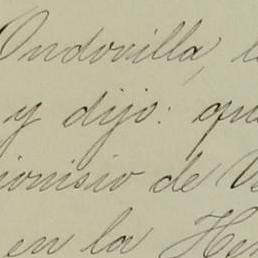 Ondovilla, l
y dijo: que
ionisio de V
en la He